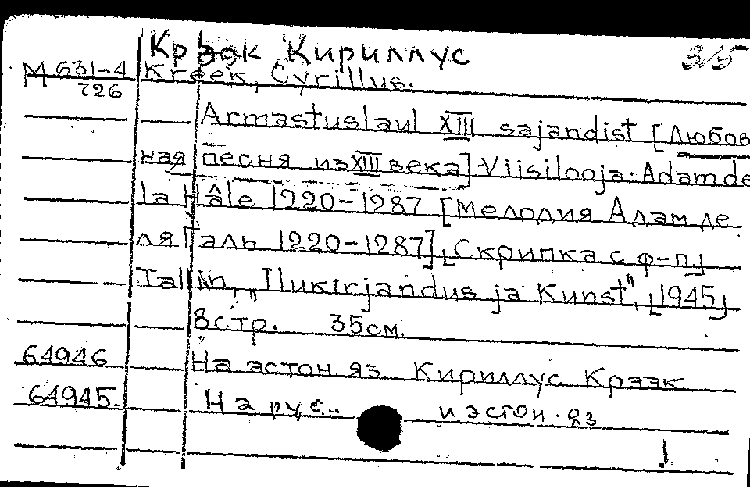 Крээк Кириллус 3/5
М 631-4 Kreek, Cyrillus.
726
Armastuslaul XIII sajandist [Любов
ная песня из XIII века] Viisilooja: Adam de
la Hâle 1220-1287 [Мелодия Адам де
ля Галь 1220-1287] [Скрипка с ф-п]
Tallin, "Ilukirjandus ja Kunst", [1945]
8 стр. 35 см.
64946 На эстон яз. Кириллус Крээк
64945 На рус. и эстон. яз